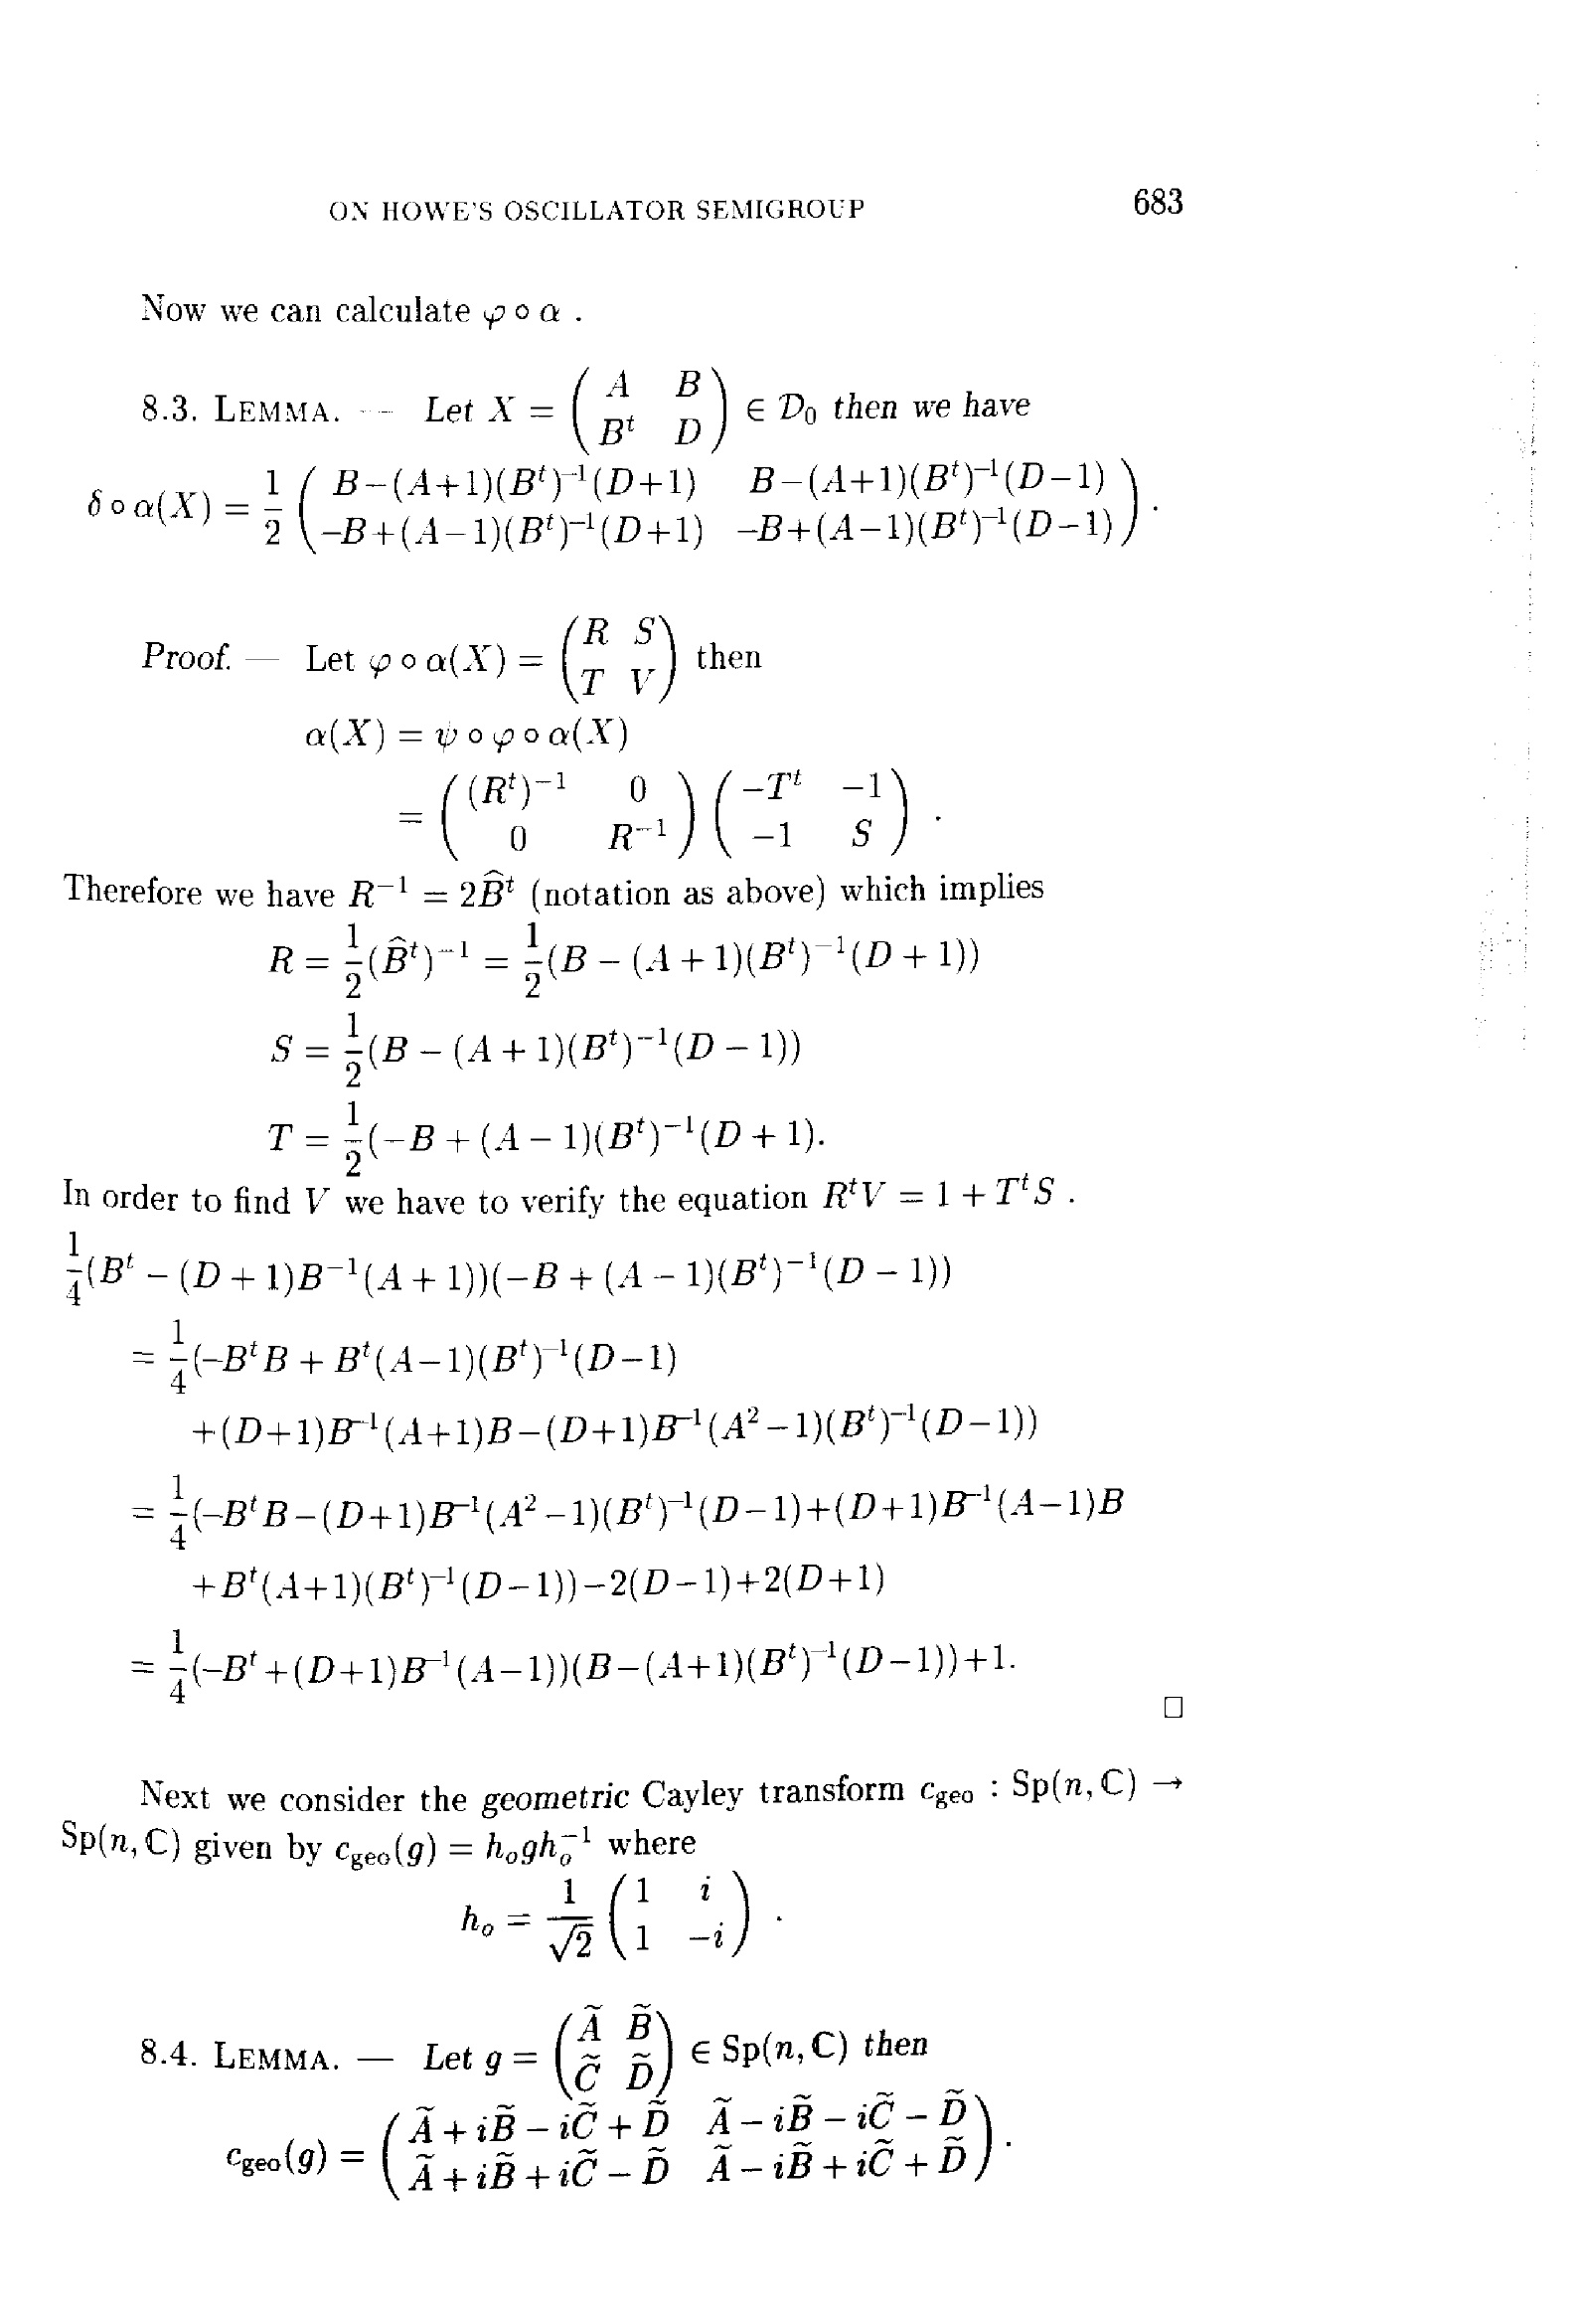 ON HOWE'S OSCILLATOR SEMIGROUP 683
Now we can calculate φ ∘ α .
8.3. LEMMA. — Let X = \begin{pmatrix} A & B \\ B^t & D \end{pmatrix} ∈ 𝒟_0 then we have
δ ∘ α(X) = \frac{1}{2} \begin{pmatrix} B-(A+1)(B^t)^{-1}(D+1) & B-(A+1)(B^t)^{-1}(D-1) \\ -B+(A-1)(B^t)^{-1}(D+1) & -B+(A-1)(B^t)^{-1}(D-1) \end{pmatrix}.
Proof. — Let φ ∘ α(X) = \begin{pmatrix} R & S \\ T & V \end{pmatrix} then
α(X) = ψ ∘ φ ∘ α(X)
= \begin{pmatrix} (R^t)^{-1} & 0 \\ 0 & R^{-1} \end{pmatrix} \begin{pmatrix} -T^t & -1 \\ -1 & S \end{pmatrix} .
Therefore we have R^{-1} = 2\widehat{B}^t (notation as above) which implies
R = \frac{1}{2}(\widehat{B}^t)^{-1} = \frac{1}{2}(B - (A + 1)(B^t)^{-1}(D + 1))
S = \frac{1}{2}(B - (A + 1)(B^t)^{-1}(D - 1))
T = \frac{1}{2}(-B + (A - 1)(B^t)^{-1}(D + 1).
In order to find V we have to verify the equation R^tV = 1 + T^tS .
\frac{1}{4}(B^t - (D + 1)B^{-1}(A + 1))(-B + (A - 1)(B^t)^{-1}(D - 1))
= \frac{1}{4}(-B^tB + B^t(A-1)(B^t)^{-1}(D-1)
+(D+1)B^{-1}(A+1)B-(D+1)B^{-1}(A^2-1)(B^t)^{-1}(D-1))
= \frac{1}{4}(-B^tB-(D+1)B^{-1}(A^2-1)(B^t)^{-1}(D-1)+(D+1)B^{-1}(A-1)B
+B^t(A+1)(B^t)^{-1}(D-1))-2(D-1)+2(D+1)
= \frac{1}{4}(-B^t+(D+1)B^{-1}(A-1))(B-(A+1)(B^t)^{-1}(D-1))+1.
□
Next we consider the geometric Cayley transform c_{geo} : Sp(n, ℂ) →
Sp(n, ℂ) given by c_{geo}(g) = h_ogh_o^{-1} where
h_o = \frac{1}{\sqrt{2}} \begin{pmatrix} 1 & i \\ 1 & -i \end{pmatrix} .
8.4. LEMMA. — Let g = \begin{pmatrix} \widetilde{A} & \widetilde{B} \\ \widetilde{C} & \widetilde{D} \end{pmatrix} ∈ Sp(n, ℂ) then
c_{geo}(g) = \begin{pmatrix} \widetilde{A} + i\widetilde{B} - i\widetilde{C} + \widetilde{D} & \widetilde{A} - i\widetilde{B} - i\widetilde{C} - \widetilde{D} \\ \widetilde{A} + i\widetilde{B} + i\widetilde{C} - \widetilde{D} & \widetilde{A} - i\widetilde{B} + i\widetilde{C} + \widetilde{D} \end{pmatrix}.